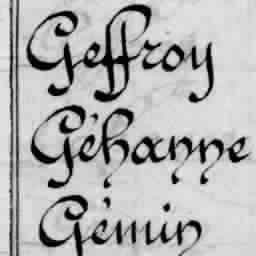 Geffroy
Géhanne
Gémin